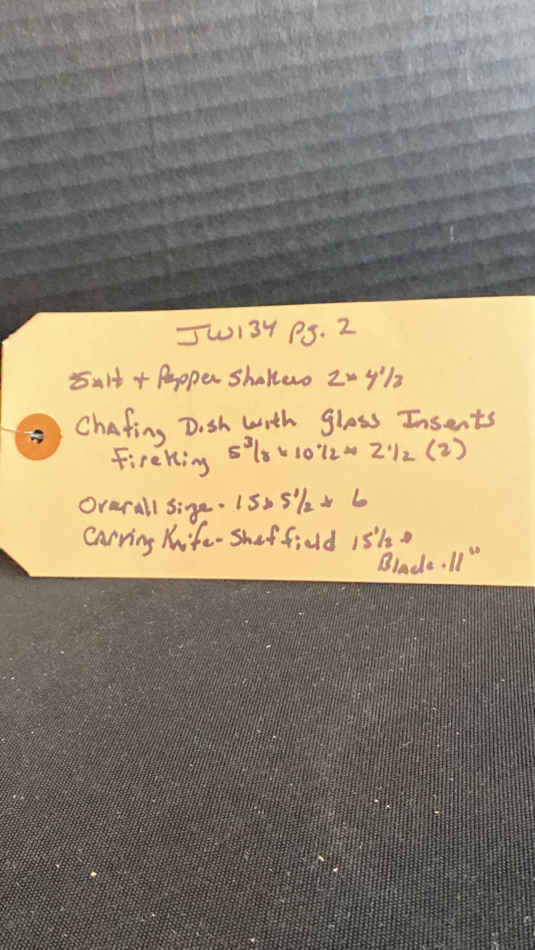 JW134 Pg. 2
Salt + Pepper Shakers 2x 4 1/2
Chafing Dish with glass Inserts
FireKing 5 3/8 x 10 1/2 x 2 1/2 (2)
Overall Size - 15x 5 1/2 x 6
Carving Knife - Sheffield 15 1/2
Blade - 11"